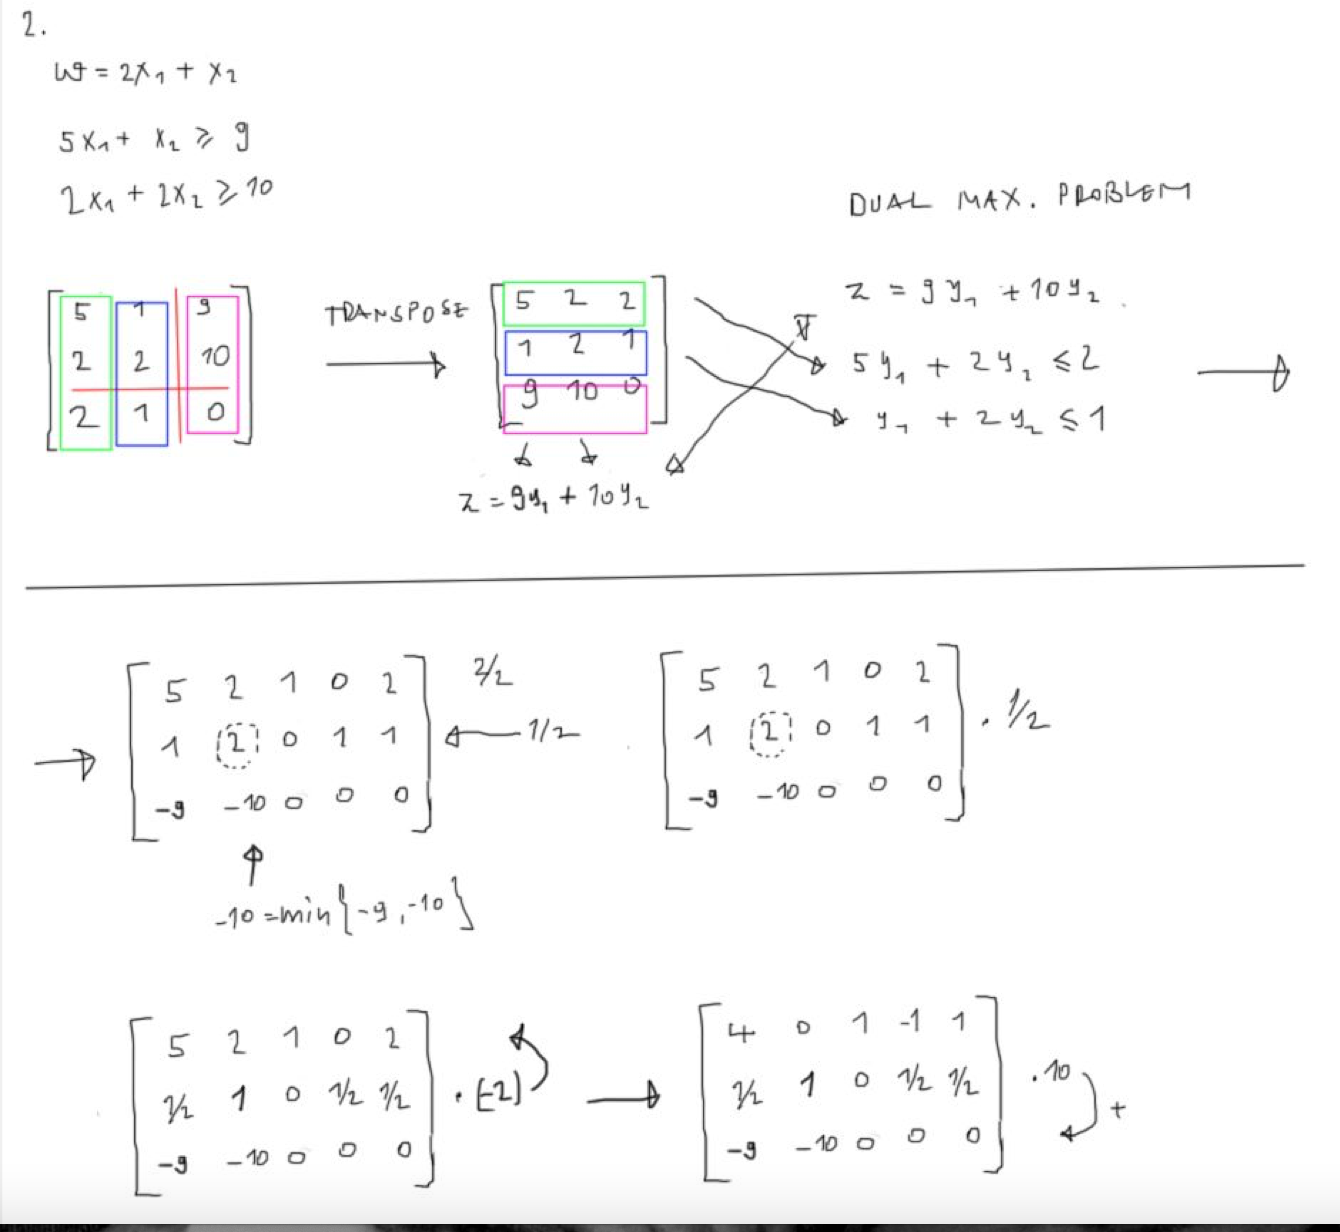 2.
w = 2x₁ + x₂
5x₁ + x₂ ≥ 9
2x₁ + 2x₂ ≥ 10
DUAL MAX. PROBLEM
5 1 9
2 2 10
2 1 0
TRANSPOSE
5 2 2
1 2 1
9 10 0
z = 9y₁ + 10y₂
z = 9y₁ + 10y₂.
5y₁ + 2y₂ ≤ 2
y₁ + 2y₂ ≤ 1
5 2 1 0 2 2/2
1 2 0 1 1 1/2
-9 -10 0 0 0
-10 = min{-9, -10}
5 2 1 0 2
1 2 0 1 1 · 1/2
-9 -10 0 0 0
5 2 1 0 2
1/2 1 0 1/2 1/2 · (-2)
-9 -10 0 0 0
4 0 1 -1 1
1/2 1 0 1/2 1/2 · 10 +
-9 -10 0 0 0